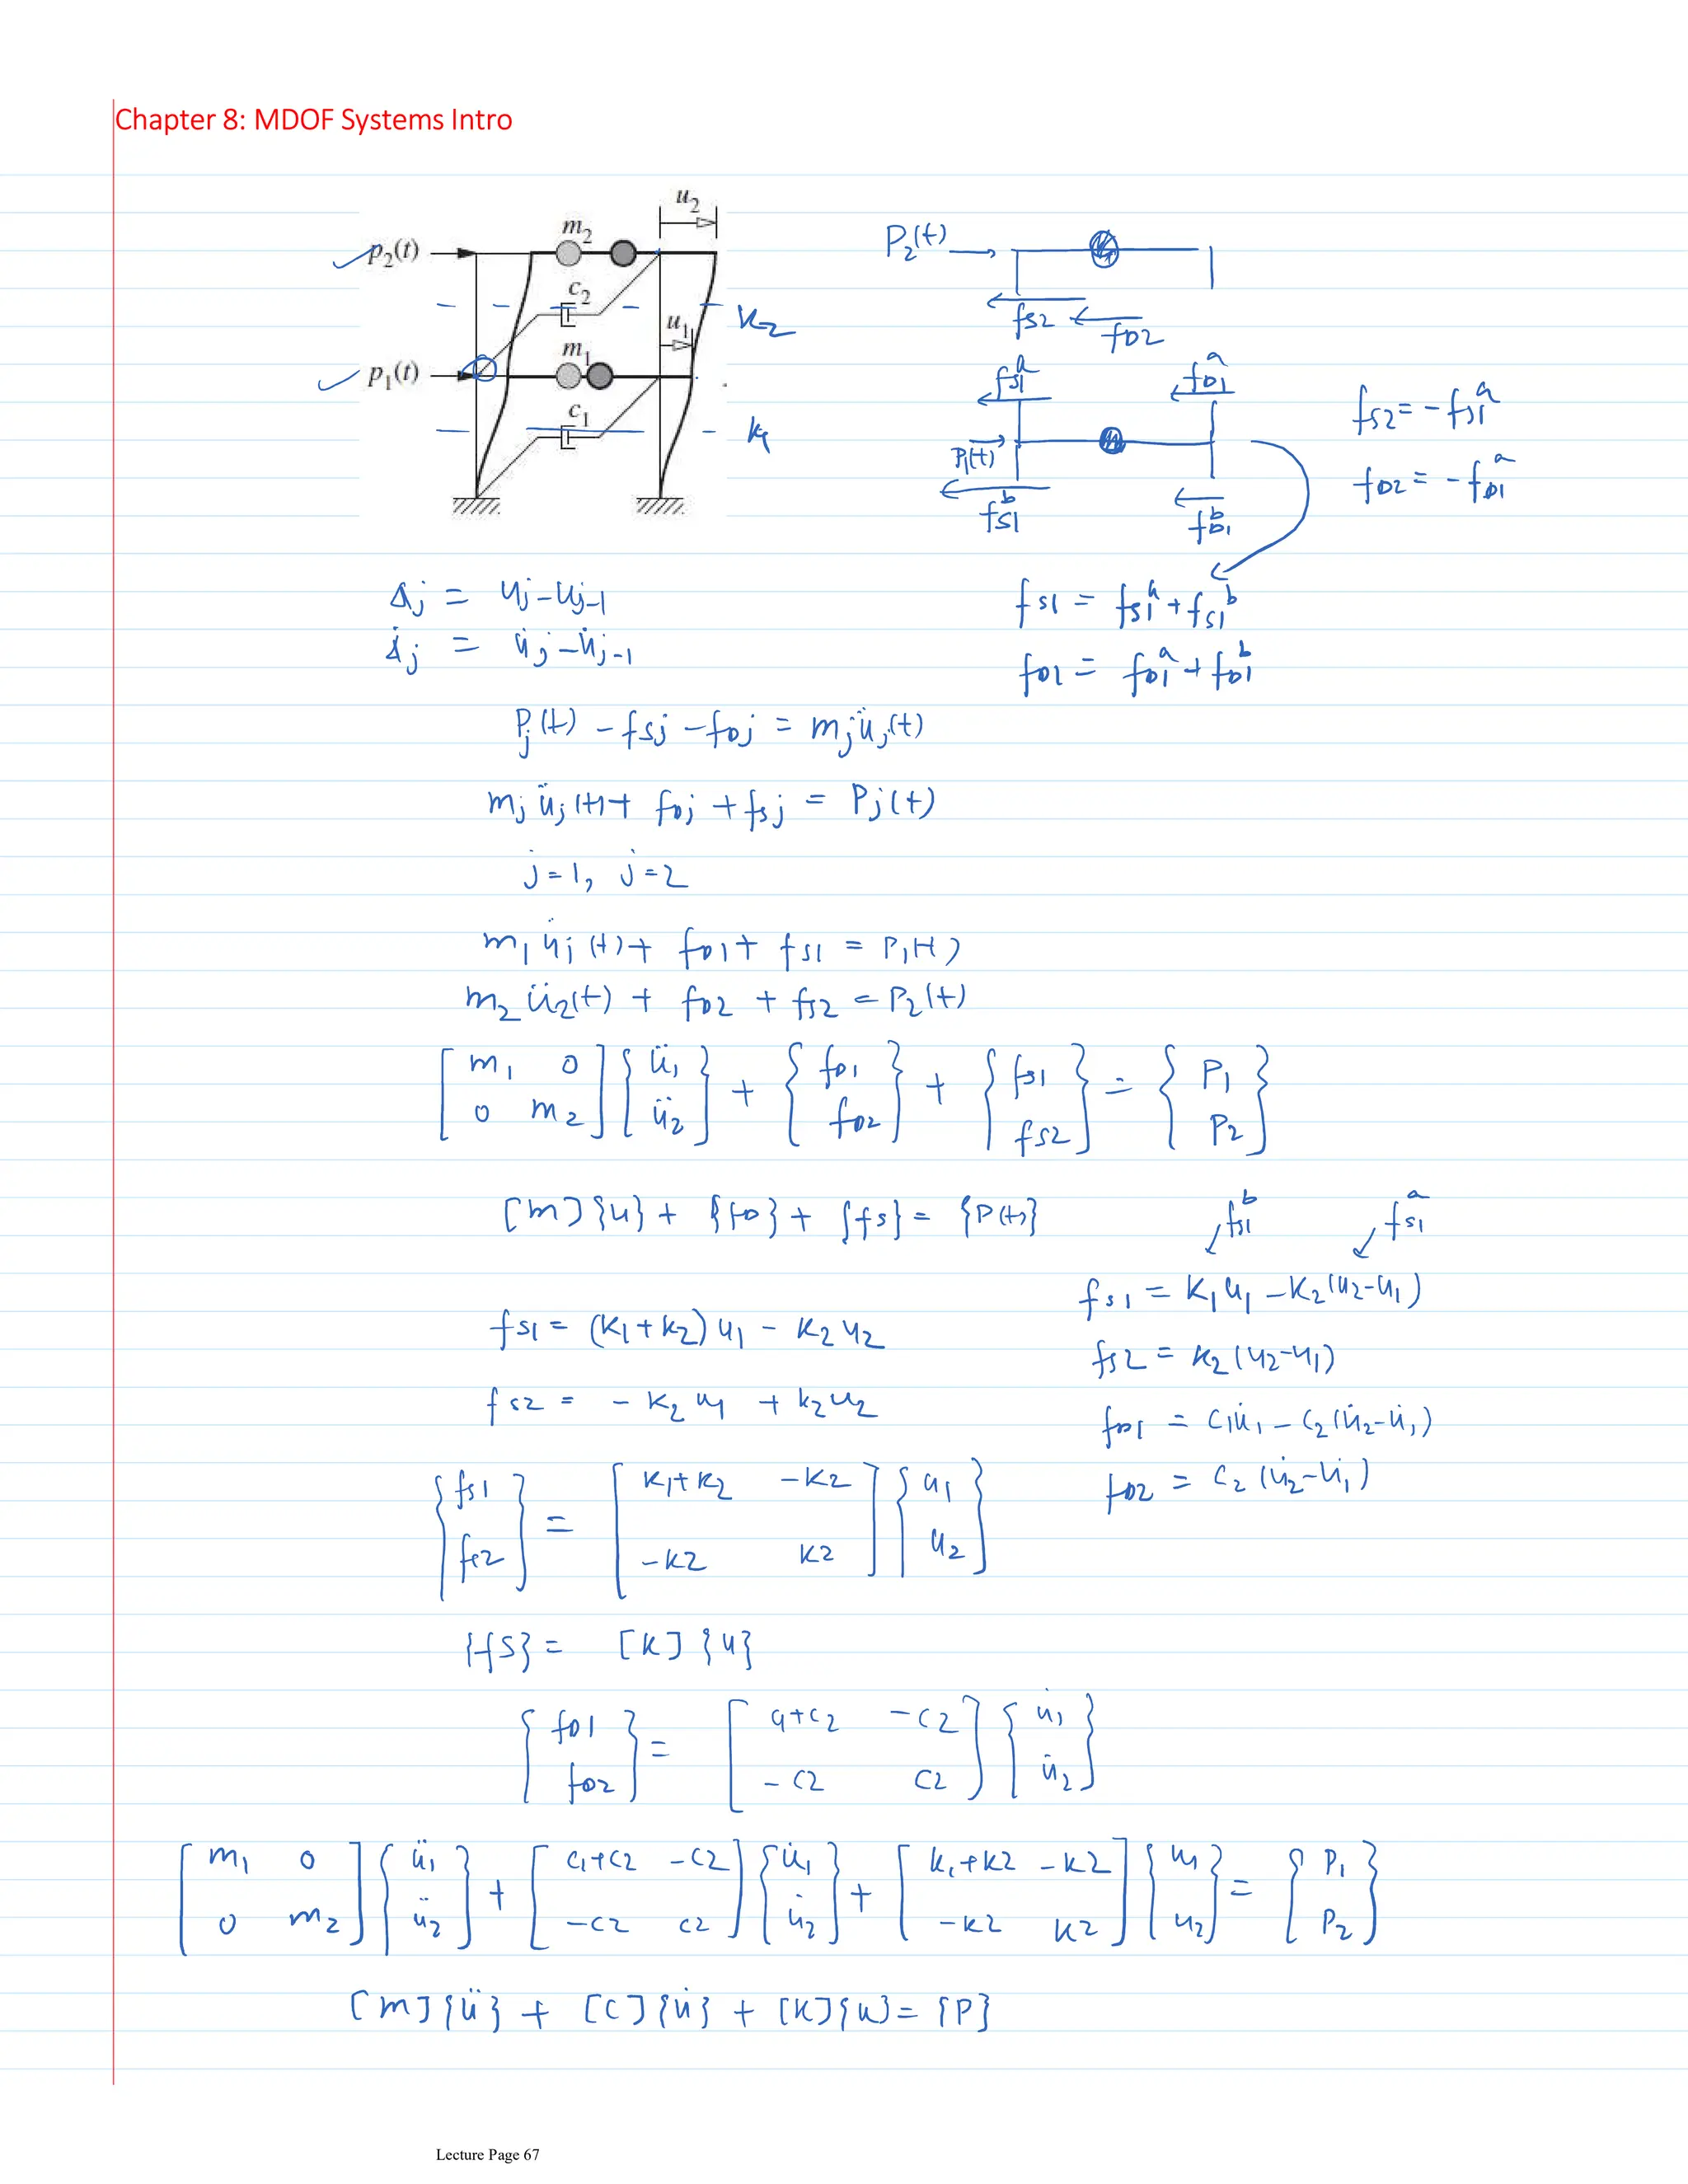 Chapter 8: MDOF Systems Intro
u₂
p₂(t) m₂
c₂ k₂
u₁
p₁(t) m₁
c₁ k₁
P₂(t)
fs2 fD2
fs1ᵃ fD1ᵃ
P₁(t)
fs1ᵇ fD1ᵇ
fs2 = -fs1ᵃ
fD2 = -fD1ᵃ
Δj = uj - uj-1
Δ̇j = u̇j - u̇j-1
fs1 = fs1ᵃ + fs1ᵇ
fD1 = fD1ᵃ + fD1ᵇ
Pj(t) - fsj - fDj = mj üj(t)
mj üj(t) + fDj + fsj = Pj(t)
j=1, j=2
m₁ ü₁(t) + fD1 + fs1 = P₁(t)
m₂ ü₂(t) + fD2 + fs2 = P₂(t)
[m₁ 0; 0 m₂] {ü₁; ü₂} + {fD1; fD2} + {fs1; fs2} = {P₁; P₂}
[m]{u} + {fD} + {fs} = {P(t)}
fs1ᵇ fs1ᵃ
fs1 = k₁u₁ - k₂(u₂-u₁)
fs2 = k₂(u₂-u₁)
fD1 = c₁u̇₁ - c₂(u̇₂-u̇₁)
fD2 = c₂(u̇₂-u̇₁)
fs1 = (k₁+k₂)u₁ - k₂u₂
fs2 = - k₂u₁ + k₂u₂
{fs1; fs2} = [k₁+k₂ -k2; -k2 k2] {u₁; u₂}
{fs} = [k]{u}
{fD1; fD2} = [c₁+c₂ -c2; -c2 c2] {u̇₁; u̇₂}
[m₁ 0; 0 m₂] {ü₁; ü₂} + [c₁+c2 -c2; -c2 c2] {u̇₁; u̇₂} + [k₁+k2 -k2; -k2 k2] {u₁; u₂} = {P₁; P₂}
[m]{ü} + [c]{u̇} + [k]{u} = {P}
Lecture Page 67